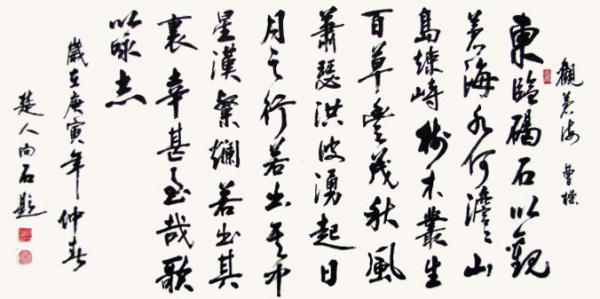 觀蒼海 曹操
東臨碣石以觀
蒼海水何澹々山
島竦峙樹木叢生
百草豐茂秋風
蕭瑟洪波湧起日
月之行若出其中
星漢粲爛若出其
裏幸甚至哉歌
以咏志
歲在庚寅年仲春
楚人向石題